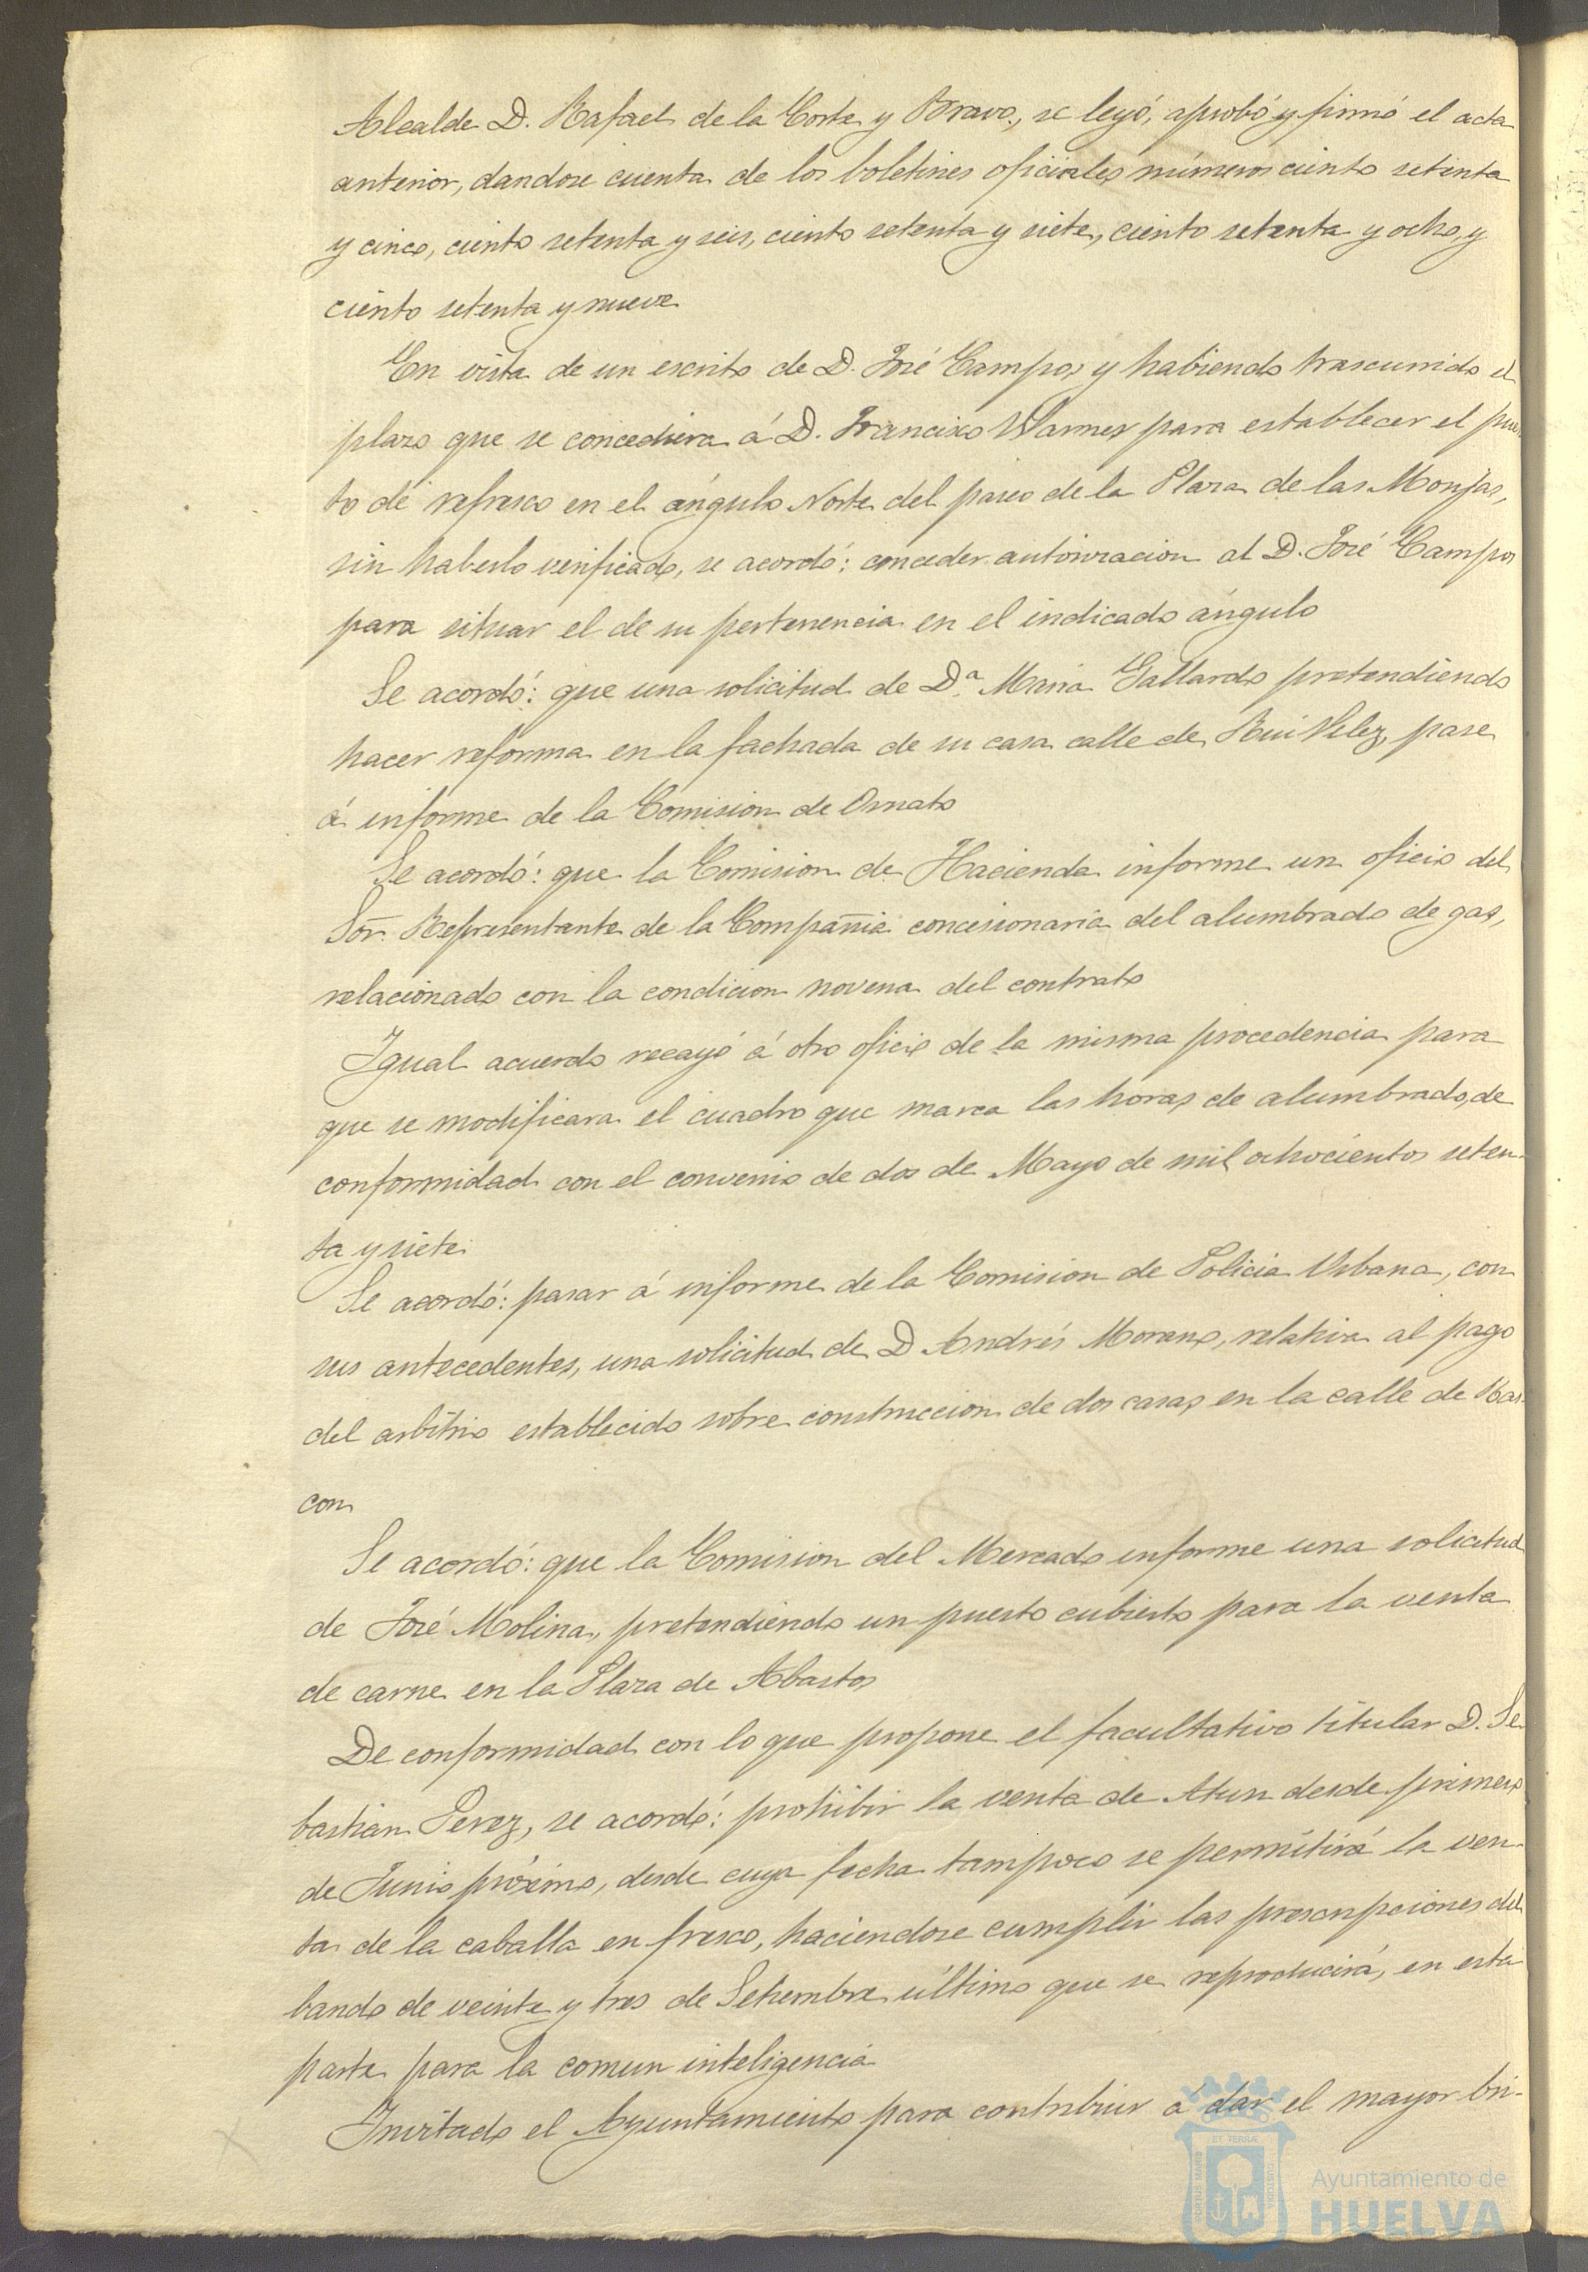 Alcalde D. Rafael de la Corte y Bravo, se leyó, aprobó y firmó el acta
anterior, dandose cuenta de los boletines oficiales números ciento setenta
y cinco, ciento setenta y seis, ciento setenta y siete, ciento setenta y ocho, y
ciento setenta y nueve
En vista de un escrito de D. José Campos y habiendo trascurrido el
plazo que se concediera á D. Francisco para establecer el pues-
to de refresco en el ángulo Norte del paseo de la Plaza de las Monjas,
sin haberlo verificado, se acordó: conceder autorizacion al D. José Campos
para situar el de su pertenencia en el indicado ángulo
Se acordó: que una solicitud de D.ª Maria Gallardo pretendiendo
hacer reforma en la fachada de su casa calle de Rui Velez, pase
á informe de la Comision de Ornato
Se acordó: que la Comision de Hacienda informe un oficio del
Sor. Representante de la Compañia concesionaria del alumbrado de gas,
relacionado con la condicion novena del contrato
Igual acuerdo recayó á otro oficio de la misma procedencia para
que se modificara el cuadro que marca las horas de alumbrado, de
conformidad con el convenio de dos de Mayo de mil ochocientos seten-
ta y siete
Se acordó: pasar á informe de la Comision de Policia Urbana, con
sus antecedentes, una solicitud de D Andrés Moreno, relativa al pago
del arbitrio establecido sobre construccion de dos casas en la calle de Ras-
con
Se acordó: que la Comision del Mercado informe una solicitud
de José Molina, pretendiendo un puesto cubierto para la venta
de carne en la Plaza de Abastos
De conformidad con lo que propone el facultativo titular D. Se-
bastian Perez, se acordó: prohibir la venta de Atun desde primero
de Junio próximo, desde cuya fecha tampoco se permitirá la ven-
ta de la caballa en fresco, haciendose cumplir las prescripciones del
bando de veinte y tres de Setiembre último que se reproducirá, en esta
parte para la comun inteligencia
Invitado el Ayuntamiento para contribuir á dar el mayor bri-
Ayuntamiento de
HUELVA